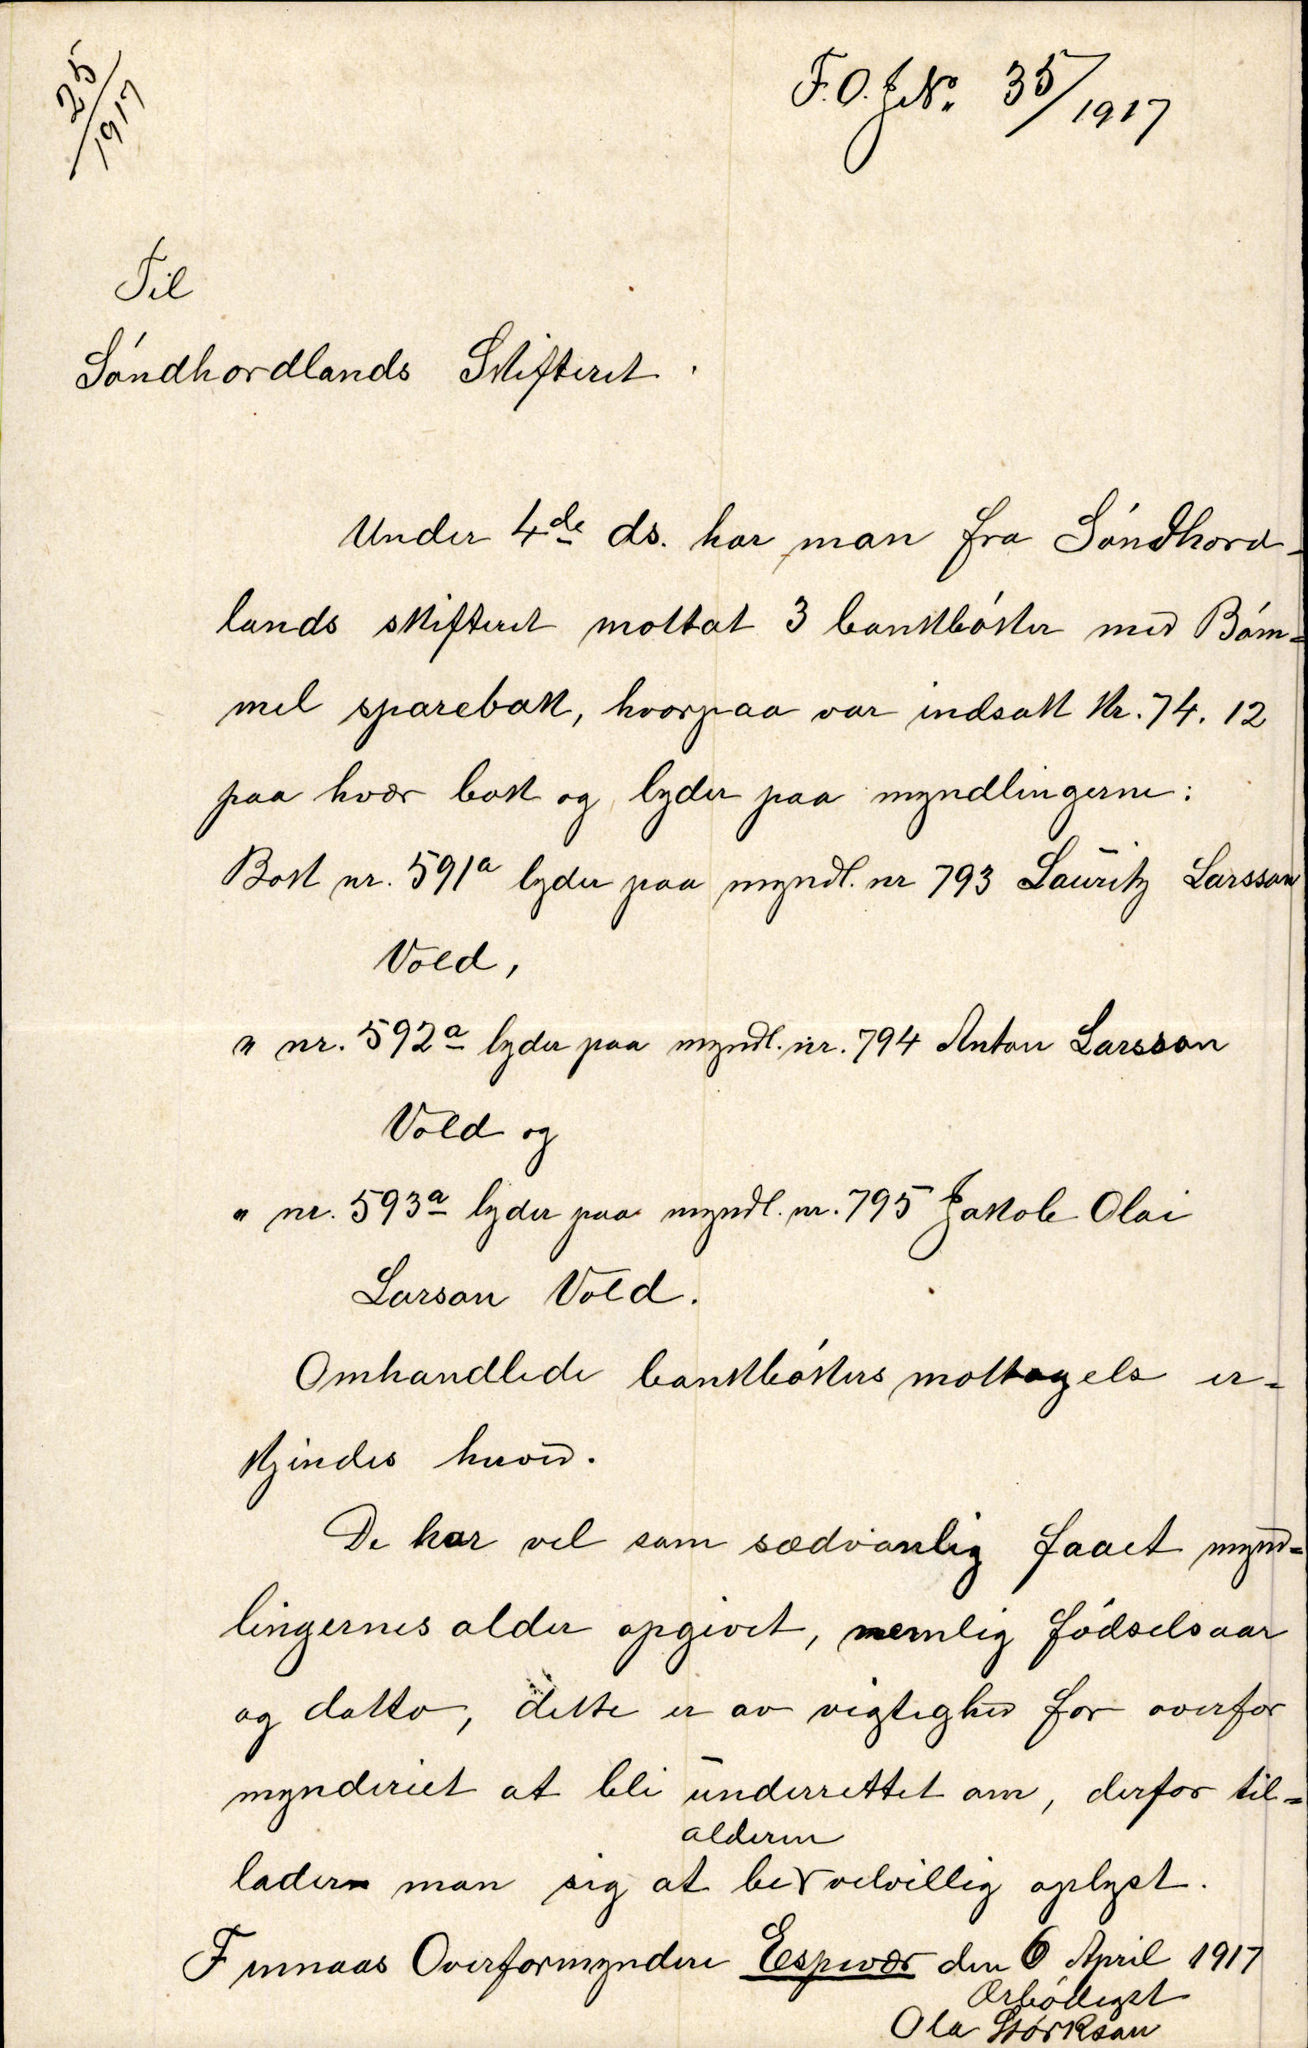 25/1917
F.O.J.No. 35/1917
Til
Søndhordlands Skifteret.
Under 4de ds. har man fra Søndhord-
lands skifteret mottat 3 bankbøker med Bøm-
mel sparebak, hvorpaa var indsatt kr. 74.12
paa hvær bok og lyder paa myndlingerne:
Bok nr. 591a lyder paa myndl. nr 793 Lauritz Larsson
Vold,
" nr. 592a lyder paa myndl. nr. 794 Anton Larsson
Vold og
" nr. 593a lyder paa myndl. nr. 795 Jakob Olai
Larson Vold.
Omhandlede bankbøkers mottagels er-
kjendes herved.
De har vel som sædvanlig faaet mynd-
lingernes alder opgivet, nemlig fødselsaar
og datto, dette er av vigtighed for overfor
mynderiet at bli underrettet om, derfor til-
alderen
lader man sig at be velvillig oplyst.
Finnaas Overformynderi Espevær den 6 April 1917
Ærbødigst
Ola Størkson